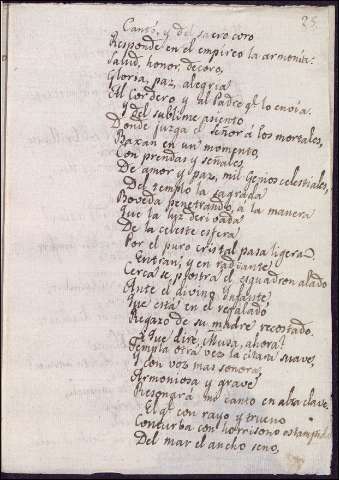 25.
Cantó, y del sacro coro
Responde en el empireo la armonía:
Salud, honor, decoro,
Gloria, paz, alegría
Al Cordero y al Padre qe. lo envia.
Y del sublime asiento
Donde juzga el Señor á los mortales,
Baxan en un momento,
Con prendas y señales
De amor y paz, mil Genios celestiales,
Del templo la sagrada
Boveda penetrando, á la manera
Que la luz derivada
De la celeste esfera
Por el puro cristal pasa ligera.
Entran, y en radiante
Cerca se postra el esquadron alado
Ante el divino Infante
Que está en el regalado
Regazo de su madre recostado.
Qué diré, Musa, ahora?
Templa otra vez la citara suave,
Y con voz mas sonora,
Armoniosa y grave
Resonará mi canto en alta clave.
El qe. con rayo y trueno
Conturba con horrisono estampido
Del mar el ancho seno,